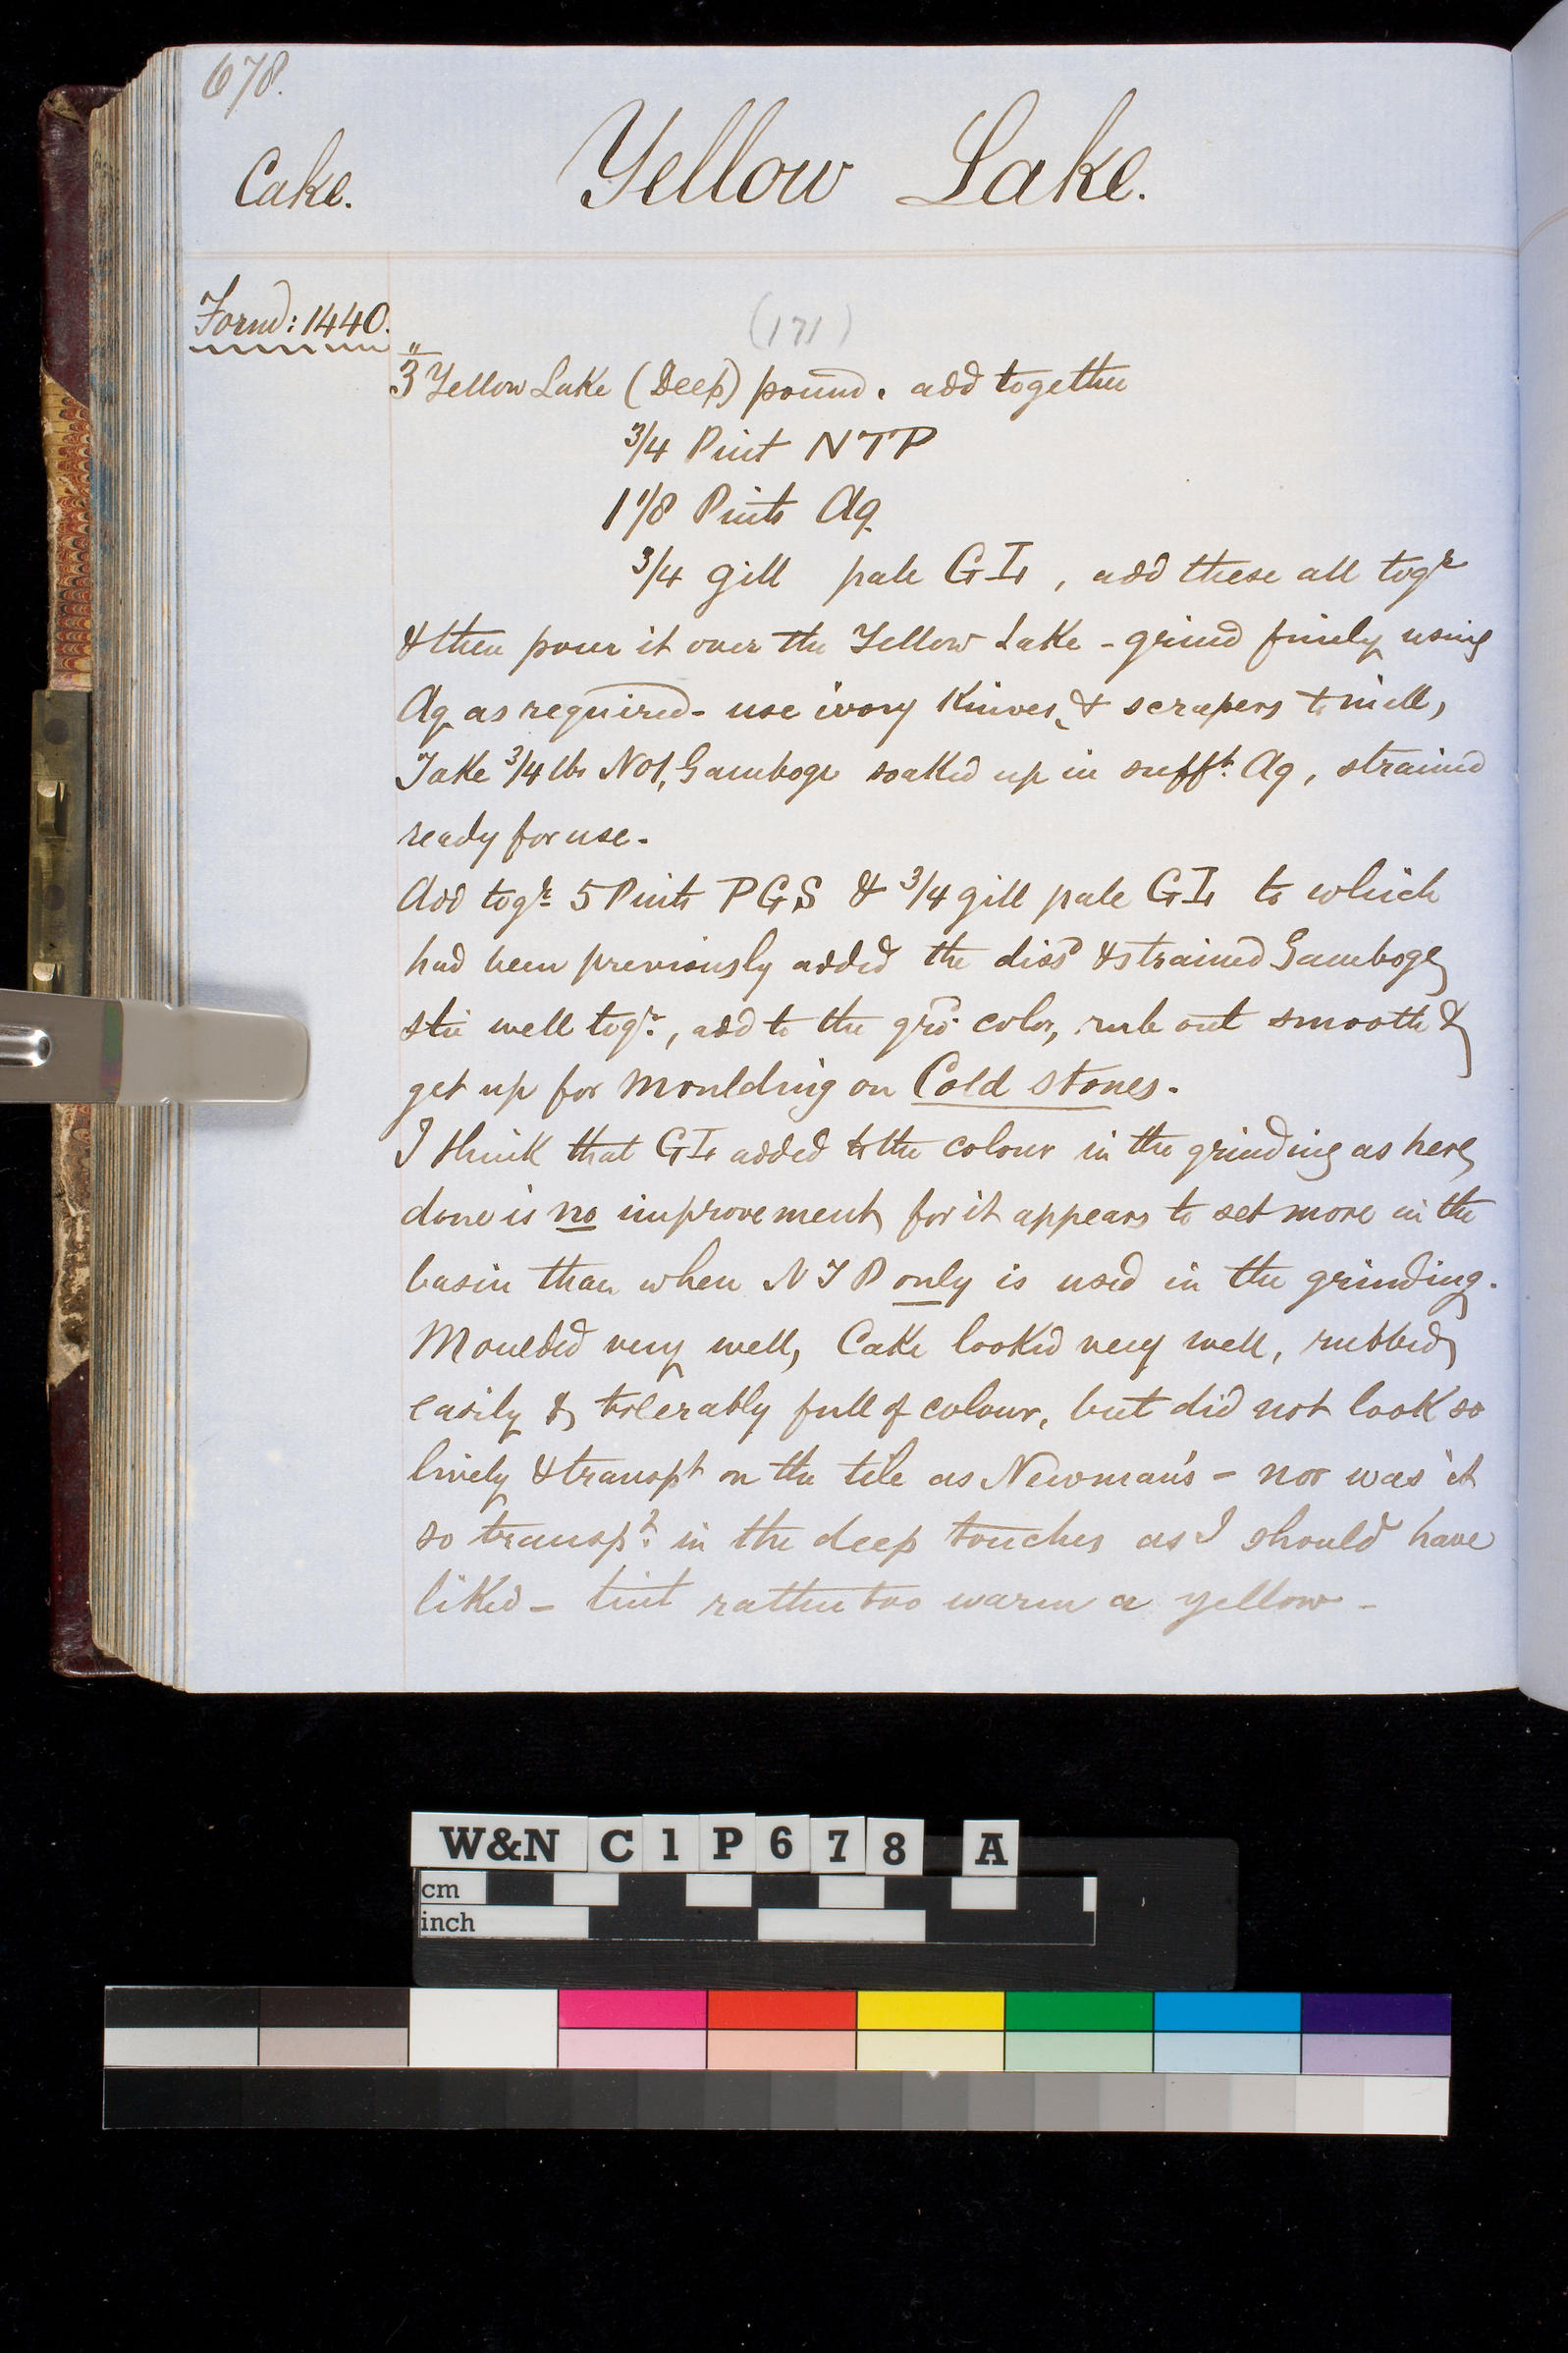 678.
Cake. Yellow Lake.
Form: 1440.
(171)
3" Yellow Lake (Deep) pound. add together
3/4 Pint NTP
1 1/8 Pints Aq
3/4 gill pale GIs, add these all togr
& then pour it over the Yellow Lake - grind finely using
Aq as required - use ivory Knives, & scrapers to mill,
Take 3/4 lbs No1, Gamboge soaked up in sufft. Aq, strained
ready for use.
Add togr. 5 Pints PGS & 3/4 gill pale GIs to which
had been previously added the dissd & strained Gamboge
stir well togr., add to the grd. color, rub out smooth &
get up for Moulding on Cold stones.
I think that GIs added to the colour in the grinding as here
done is no improvement for it appears to set more in the
basin than when NTP only is used in the grinding.
Moulded very well, Cake looked very well, rubbed
easily & tolerably full of colour, but did not look so
lively & transpt on the tile as Newman's - nor was it
so transpt. in the deep touches as I should have
liked - tint rather too warm a yellow -
W&N C1P678 A
cm
inch